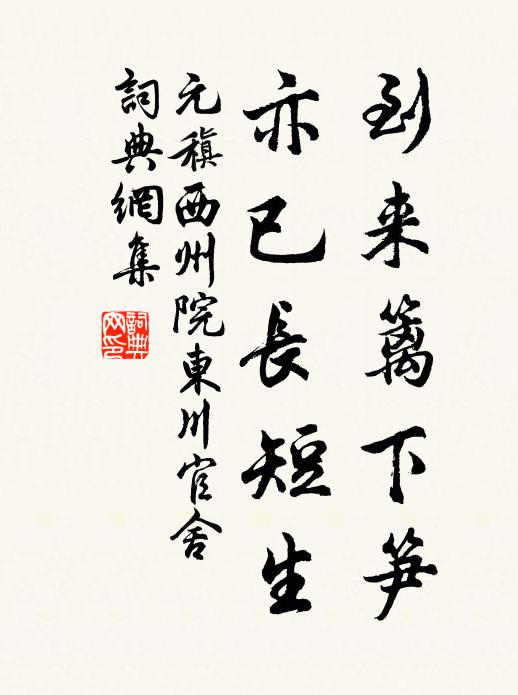 到来篱下笋
亦已長短生
元稹西州院東川官舍
詞典網集
詞典网印